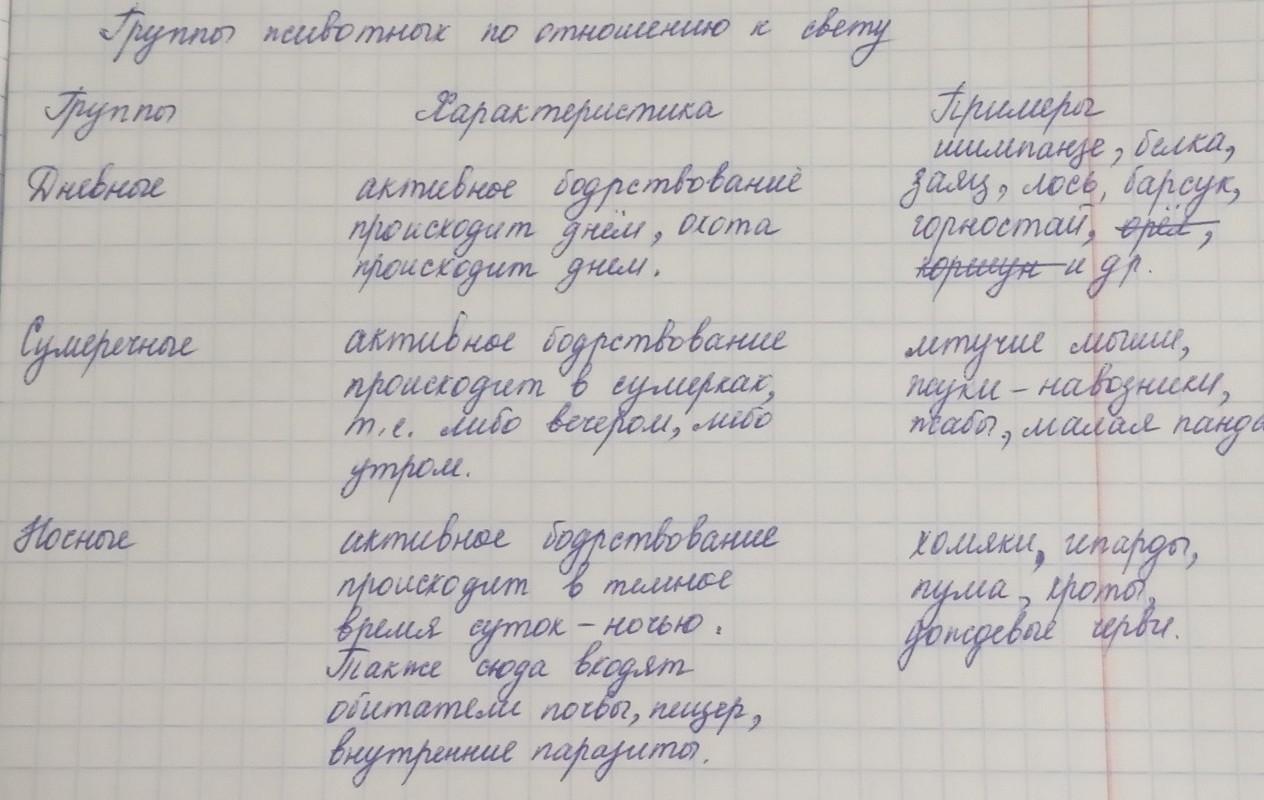 Группы животных по отношению к свету
Группы Характеристика Примеры
шимпанзе, белка,
Дневные активное бодрствование заяц, лось, барсук,
происходит днём, охота горностай, орёл,
происходит днем. коршун и др.
Сумеречные активное бодрствование летучие мыши,
происходит в сумерках, жуки - навозники,
т.е. либо вечером, либо жабы, малая панда
утром.
Ночные активное бодрствование хомяки, гепарды,
происходит в темное пума, кроты,
время суток - ночью. дождевые черви.
Также сюда входят
обитатели почвы, пещер,
внутренние паразиты.